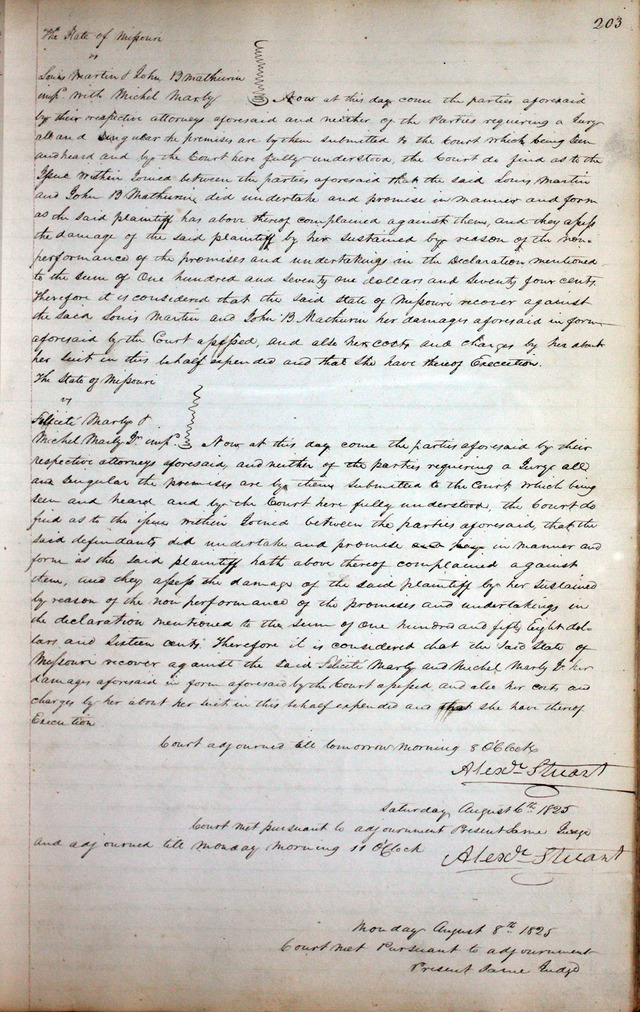 203
The State of Missouri
vs
Louis Martin & John B Mathurin
impd. with Michel Marly Now at this day come the parties aforesaid
by their respective attorneys aforesaid and neither of the Parties requiring a Jury
all and Singular the premises are by them submitted to the Court which being Seen
and heard and by the Court here fully understood, the Court do find as to the
Issue within Joined between the parties aforesaid that the said Louis Martin
and John B Mathurin, did undertake and promise in manner and form
as the said plaintiff has above thereof complained against them, and they assess
the damage of the said plaintiff by her sustained by reason of the non-
performance of the promises and undertakings in the Declaration mentioned
to the Sum of One hundred and Seventy one dollars and Seventy four cents.
Therefore it is considered that the said State of Missouri recover against
the said Louis Martin and John B Mathurin her damages aforesaid in form
aforesaid by the Court assessed, and also her costs and charges by her about
her suit in this behalf expended and that She have thereof Execution.
The State of Missouri
vs
Felicité Marly &
Michel Marly Jr. impd. Now at this day come the parties aforesaid by their
respective attorneys aforesaid, and neither of the parties requiring a Jury all
and Singular the premises are by them submitted to the Court which being
seen and heard and by the Court here fully understood, the Court do
find as to the issues within Joined between the parties aforesaid, that the
said defendants did undertake and promise in manner and
form as the said plaintiff hath above thereof complained against
them, and they assess the damage of the said plaintiff by her sustained
by reason of the non performance of the promises and undertakings in
the declaration mentioned to the Sum of One hundred and fifty Eight dol-
lars and Sixteen cents. Therefore it is considered that the Said State of
Missouri recover against the said Felicité Marly and Michel Marly Jr. her
damages aforesaid in form aforesaid by the Court assessed and also her costs and
charges by her about her suit in this behalf expended and that she have thereof
Execution
Court adjourned till tomorrow morning 8 O'Clock
Alexdr. Stuart
Saturday August 6th. 1825
Court met pursuant to adjournment Present Same Judge
and adjourned till Monday morning 11 O'Clock Alexdr. Stuart
Monday August 8th 1825
Court met Pursuant to adjournment
Present Same Judge